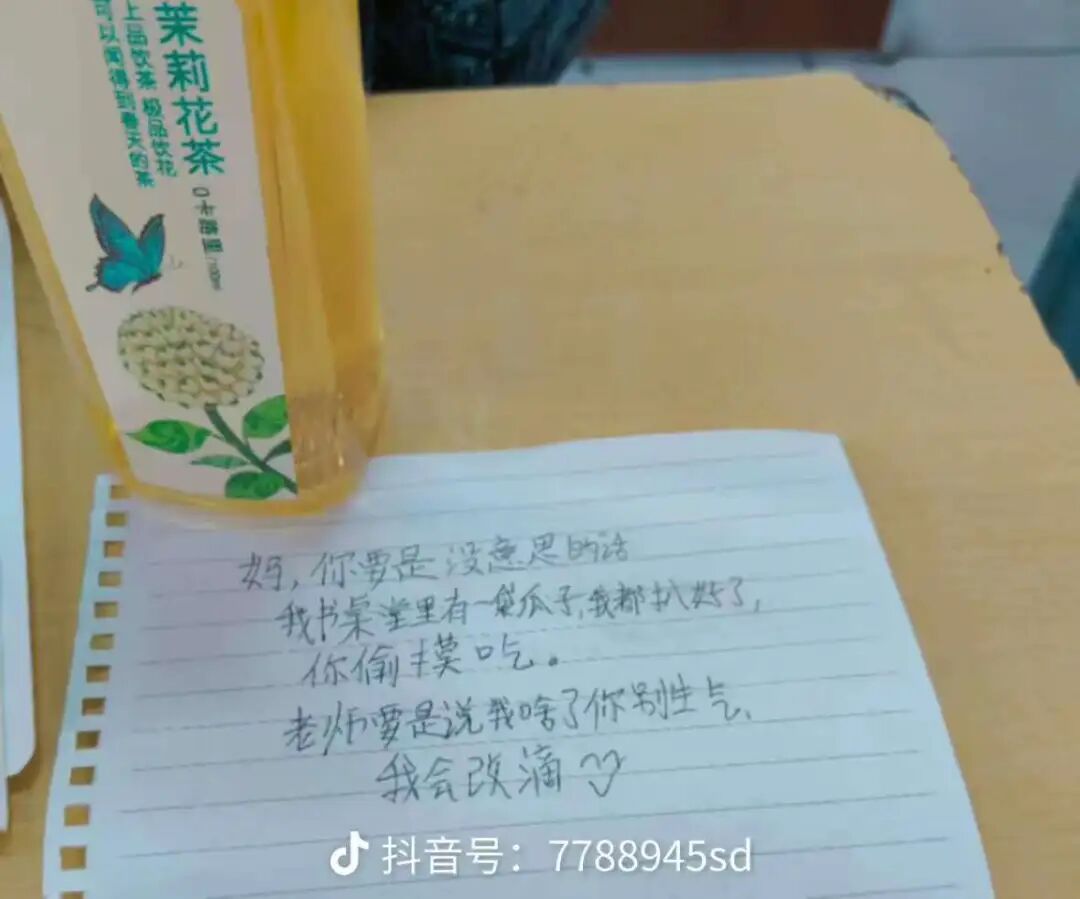 茉莉花茶
上品饮茶 极品饮花
可以闻得到春天的茶
0卡路里/100ml
妈,你要是没意思的话
我书桌堂里有一袋瓜子,我都扒好了,
你偷摸吃。
老师要是说我啥了你别生气、
我会改滴♡
抖音号：7788945sd